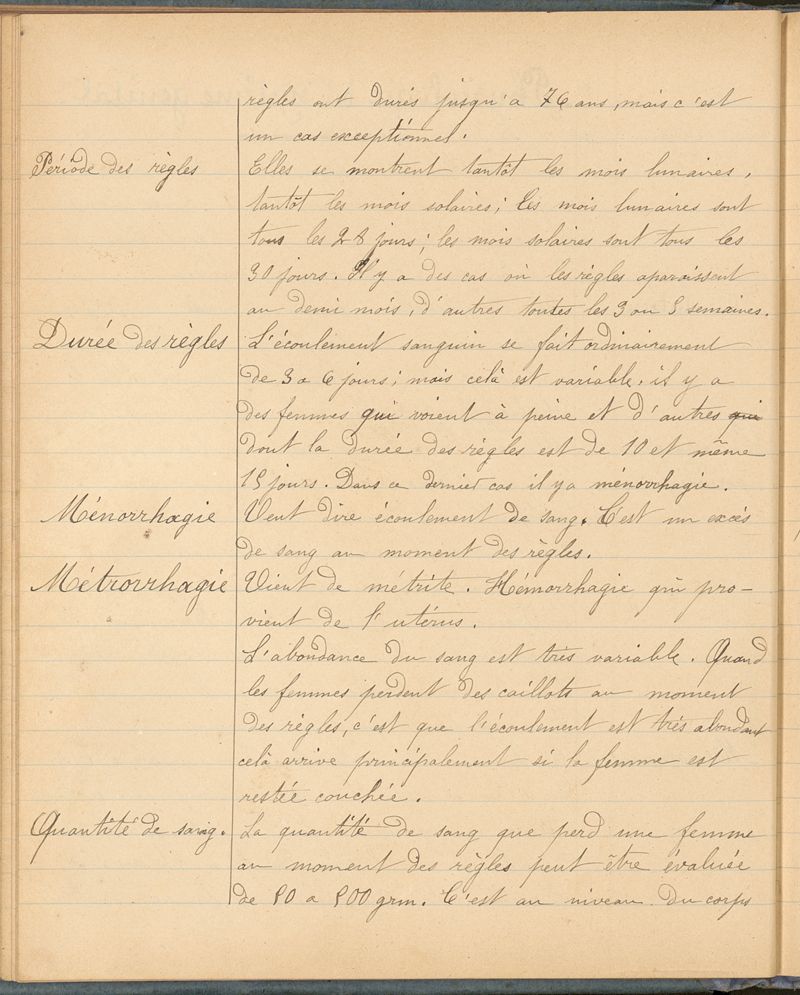 règles ont durés jusqu'a 76 ans, mais c'est
un cas exceptionnel.
Période des règles
Elles se montrent tantôt les mois lunaires,
tantôt les mois solaires; les mois lunaires sont
tous les 28 jours; les mois solaires sont tous les
30 jours. Il y a des cas où les règles aparaissent
au demi mois, d'autres toutes les 3 ou 5 semaines.
Durée des règles
L'écoulement sanguin se fait ordinairement
de 3 a 6 jours; mais celà est variable, il y a
des femmes qui voient à peine et d'autres qui
dont la durée des règles est de 10 et même
15 jours. Dans ce dernier cas il y a ménorrhagie.
Ménorrhagie
Veut dire écoulement de sang. C'est un excès
de sang au moment des règles.
Métrorrhagie
Vient de métrite. Hémorrhagie qui pro-
vient de l'utérus.
L'abondance du sang est très variable. Quand
les femmes perdent des caillots au moment
des règles, c'est que l'écoulement est très abondant
celà arrive principalement si la femme est
restée couchée.
Quantité de sang.
La quantité de sang que perd une femme
au moment des règles peut être évaluée
de 50 a 500 grm. C'est au niveau du corps